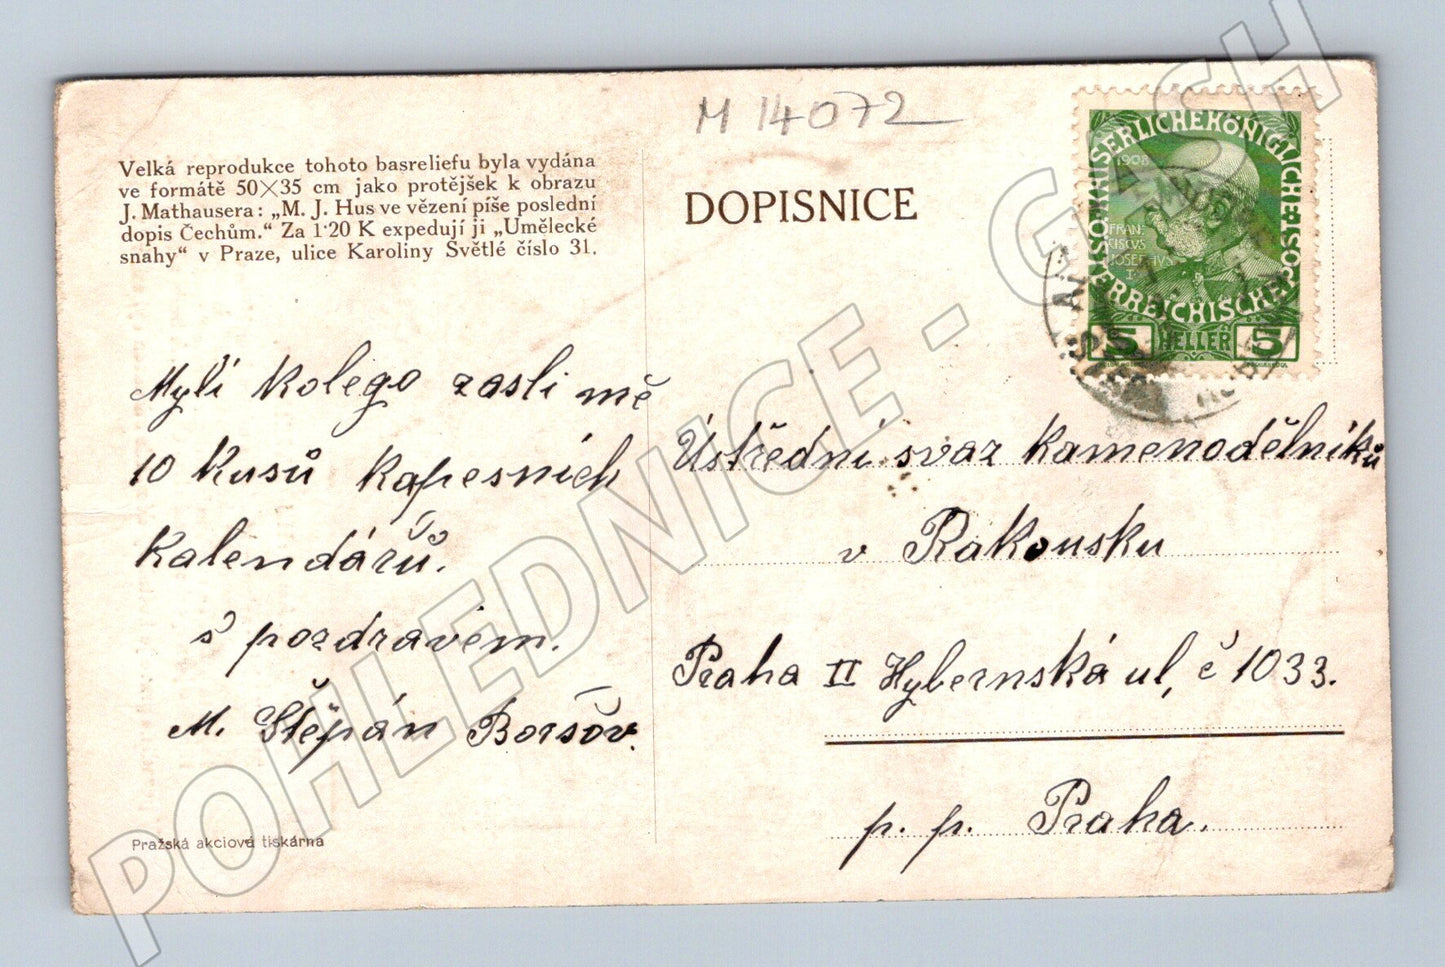 M 14072
Velká reprodukce tohoto basreliefu byla vydána
ve formátě 50×35 cm jako protějšek k obrazu
J. Mathausera: „M. J. Hus ve vězení píše poslední
dopis Čechům.“ Za 1·20 K expedují ji „Umělecké
snahy“ v Praze, ulice Karoliny Světlé číslo 31.
DOPISNICE
KAISERLICHEKÖNIGLICHE
ÖSTERREICHISCHE
POST
1908
FRAN-
CISCVS
JOSEPHVS
I
5 HELLER 5
Mylí kolego zasli mě
10 kusů kapesních
kalendářů.
s pozdravem.
M. Štěpán Boršov.
Ústřední svaz kamenodělníků
v Rakousku
Praha II Hybernská ul, č 1033.
p. p. Praha.
Pražská akciová tiskárna
POHLEDNICE - GASCH